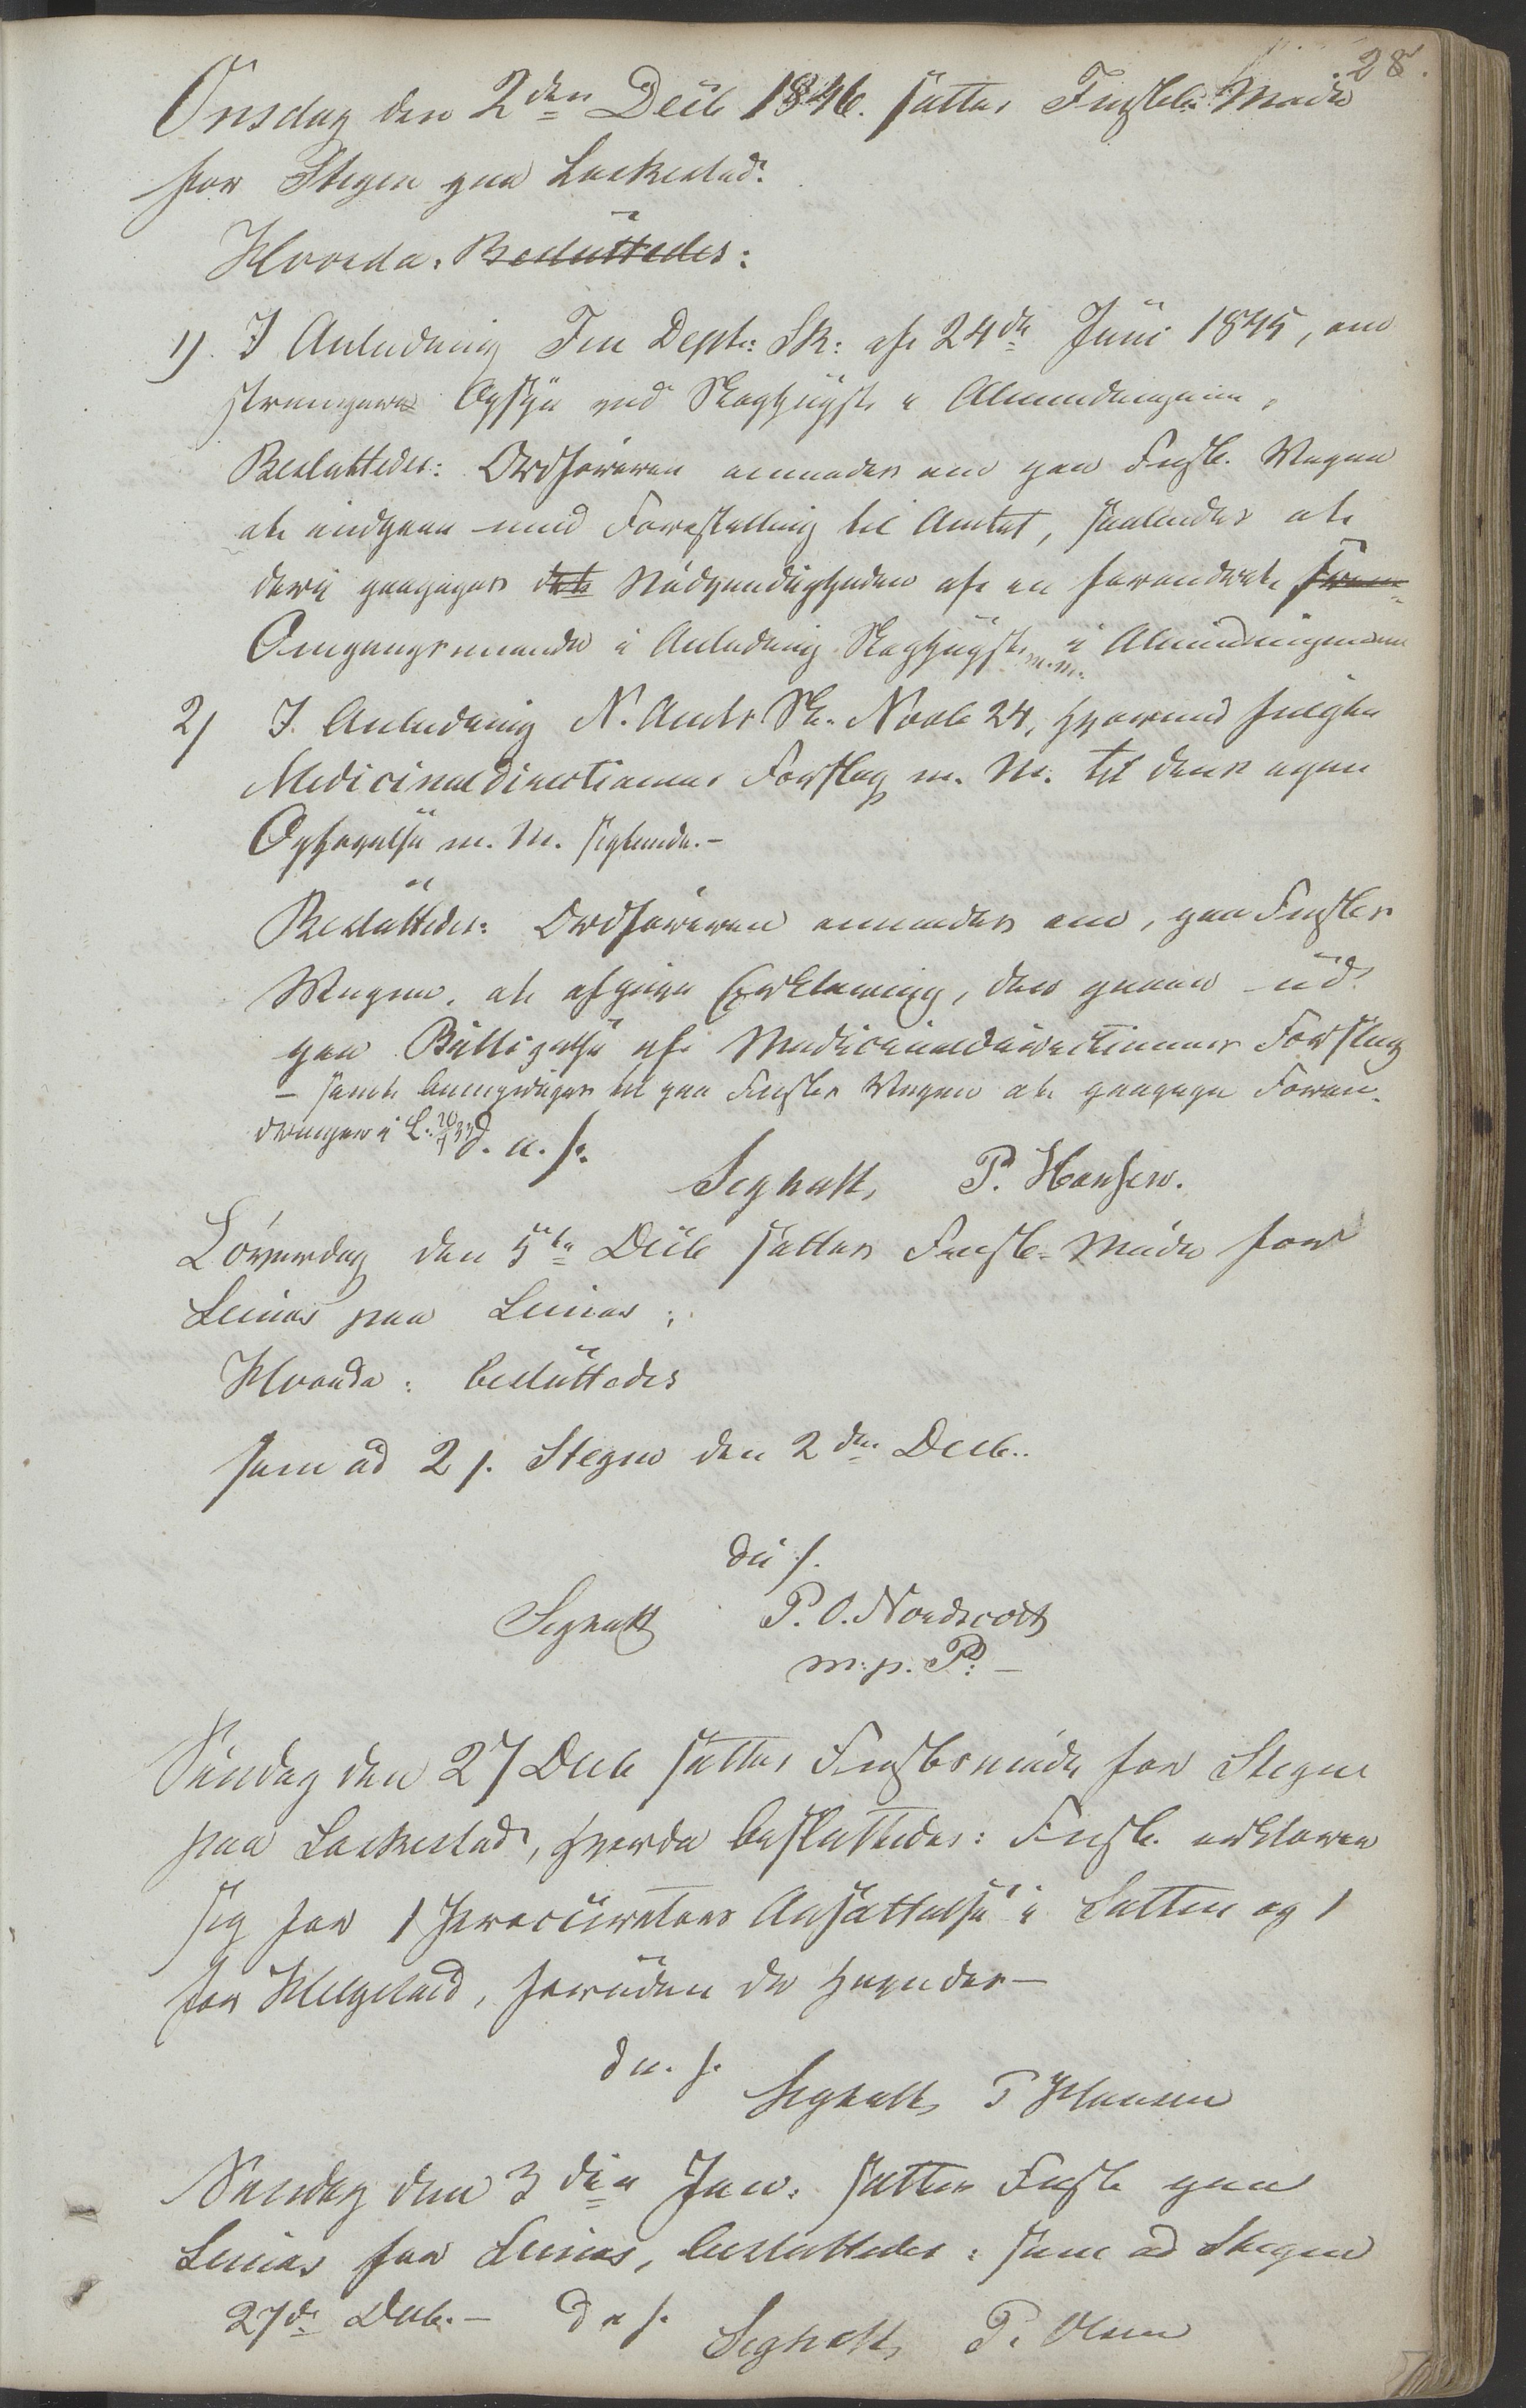 28.
Onsdag den 2den Decb 1846. sattes Fmskbs Møde
for Stegen paa Laskestad.
Hvorda: Besluttedes:
1). I Anledning Fin Depts: Sk: af 24de Juni 1845, om
strengere Opsyn ved Skoghugst i Almindingerne,
Besluttedes: Ordføreren anmodes om paa Fmskb. Vegne
at indgaae med Forestilling til Amtet, saaledes at
deri paapeges Nødvendigheden af en forandret
Omgangsmaade i Anledning Skoghugst m.m. i Almindingerne
2) I Anledning N. Amts Sk. Novb 24, hvormed fulgte
Medicinaldirectionens Forslag m. M. til dens egen
Ophævelse m. M. sigtende.-
Besluttedes: Ordføreren anmodes om, paa Fmskbs
Vegne, at afgive Erklæring, der gaaer ud
paa Billigelse af Medicinaldirectionens Forslag
- samt bemyndiges til paa Fmskbs Vegne at paapege Foran-
dringer i L. 20/7 33 d. u. s.
Seghatt, P. Hansen.
Løverdag den 5te Decb sattes Fmskb- Møde for
Leines paa Leines;
Hvorda: besluttedes
som ad 2). Stegen den 2den Decb..
du s.
Seghatt P. O. Nordscott
m. p. P: -
Søndag den 27 Decb sattes Fmskbsmøde for Stegen
paa Laskestad, hvorda besluttedes: Fmskb. erklærer
sig for 1 Procurators Ansættelse i Salten og 1
for Helgeland, foruden de havendes -
du. s.
Seghatt, P Hansen
Søndag den 3die Jan. sattes Fmskb paa
Leines for Leines, besluttedes: som ad Stegen
27de Decb. - d u s.
Seghatt, P. Olsen